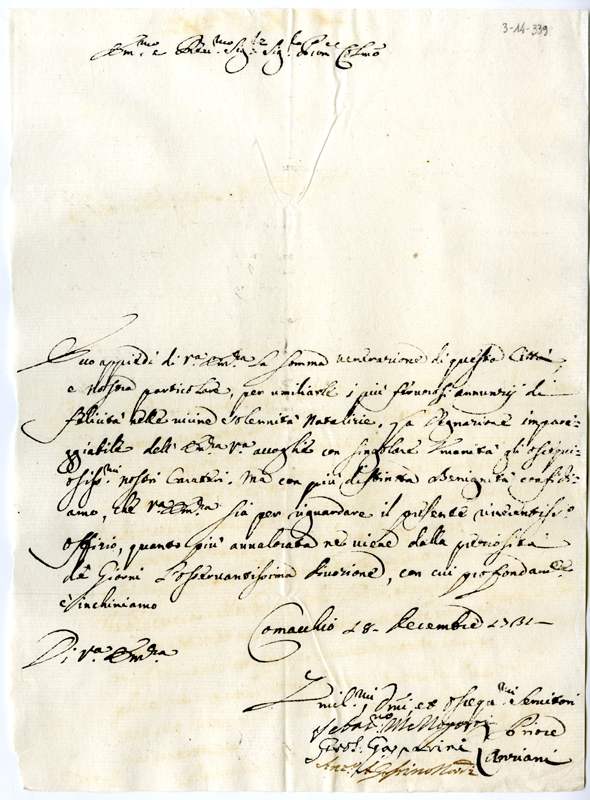 3-14-339
Em.mo e Rev.mo Sig.r Sig.r Pron Colmo
appiedi di V.a Em.za la somma venerazione di questa Città,
e nostra particolare, per umiliarle i più ferverosi annunzij di
felicità nelle vicine solennità Natalizie. La Degnazione impare-
ggiabile dell' Em.za V.a accoglie con singolare Umanità gli ossequi-
osiss.mi nostri Caratteri. Ma con più distinta Benignità confidi-
amo, che V.a Em.za sia per riguardare il presente riverentiss.o
Offizio, quanto più avvalorata ne viene dalla preziosità
de Giorni l'osservantissima divozione, con cui profondam.te
c'inchiniamo
Di V.a Em.za
Comacchio 18 Decembre 1731
Umil.mi ed Ossequ.mi Servitori
Priore
Girol. Gasparini
Anziani